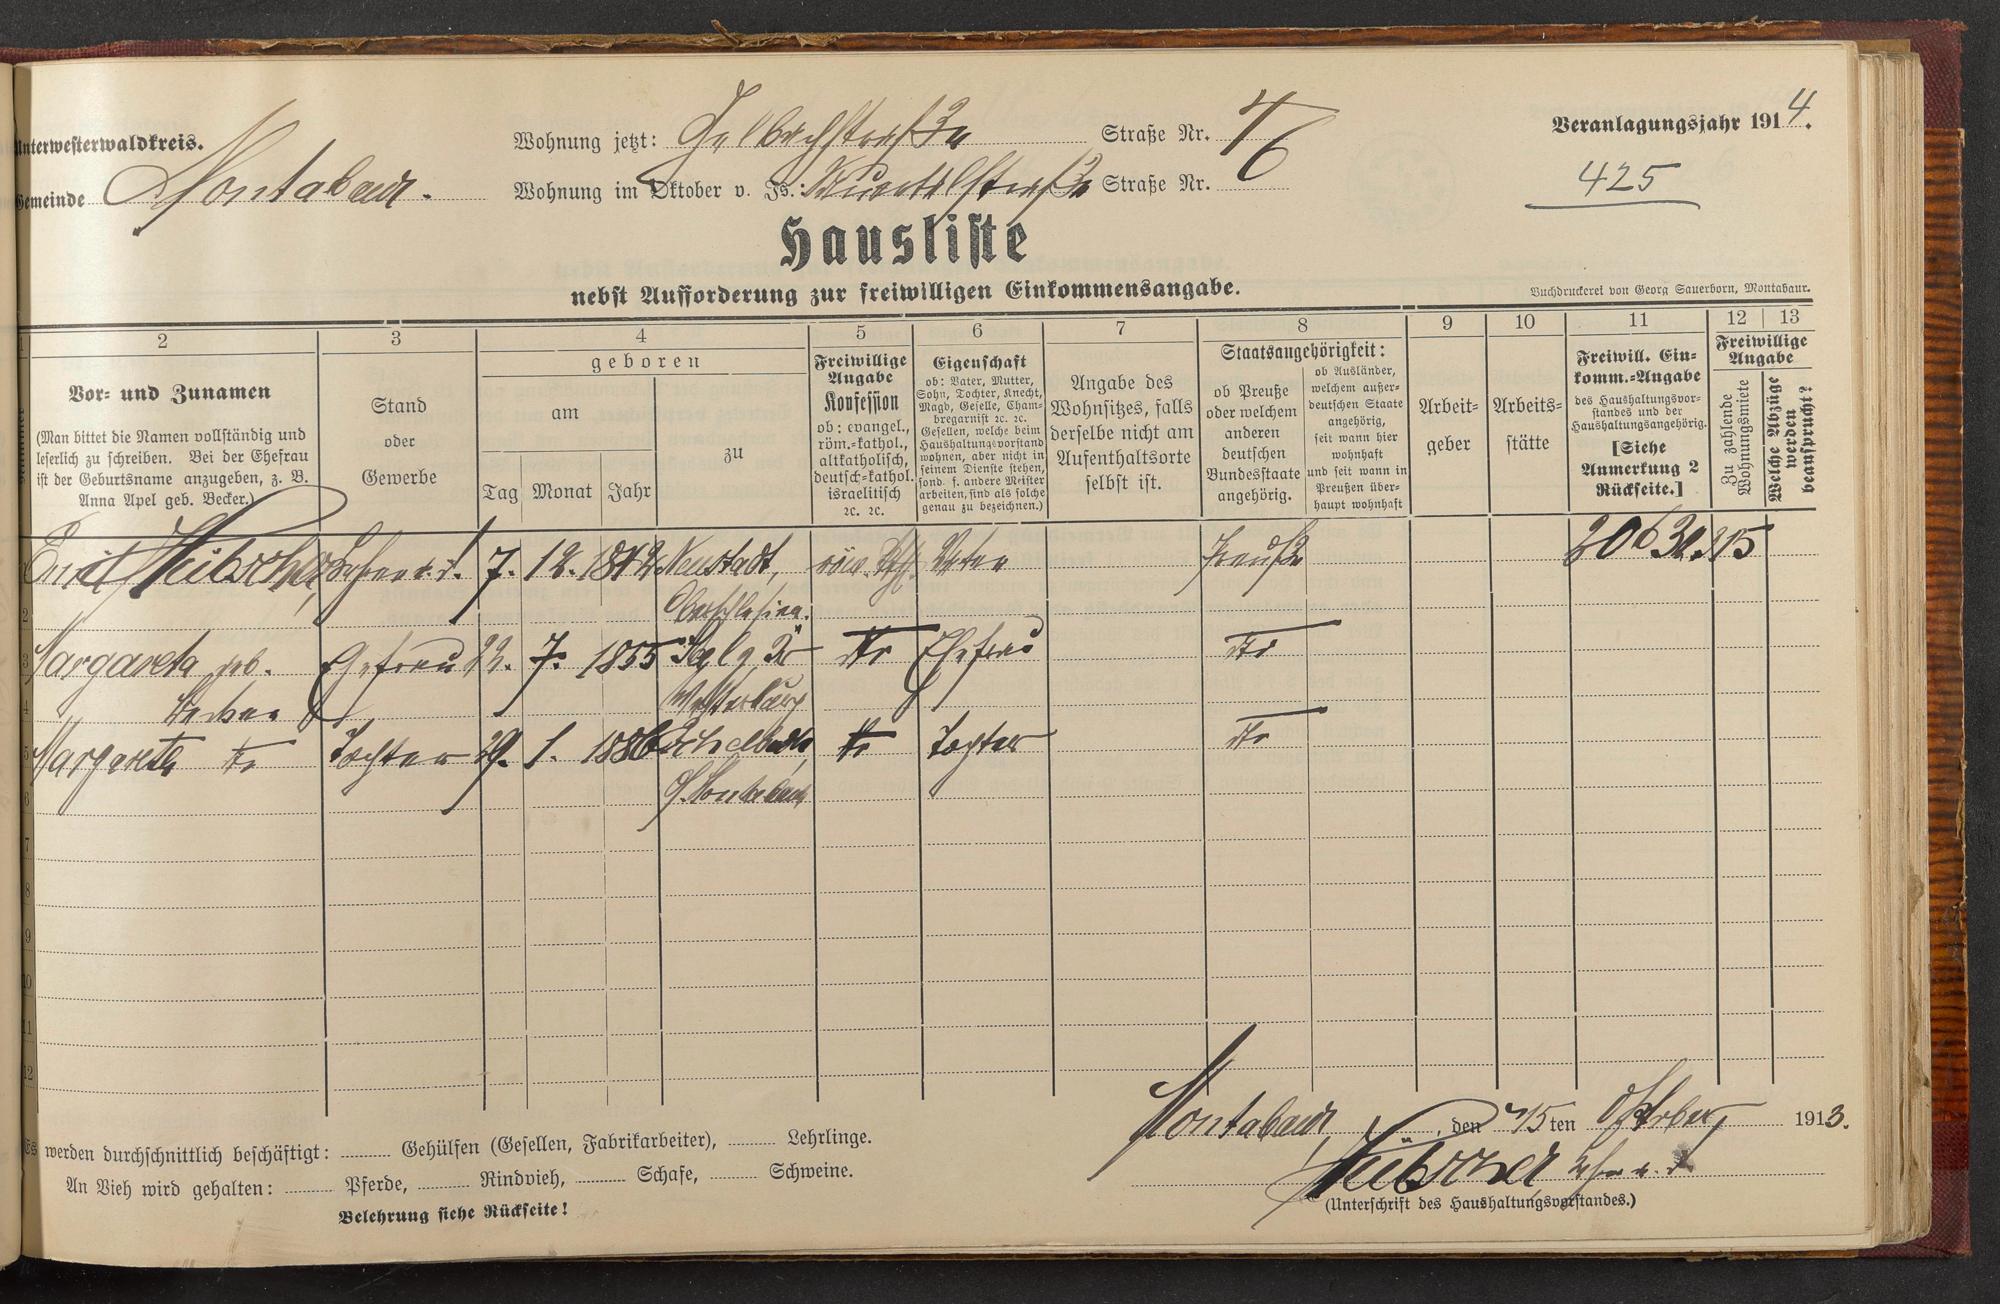 Unterwesterwaldkreis.
Wohnung jetzt: Gelbachstraße Straße Nr.
Veranlagungsjahr 1914.
Gemeinde Montabaur.
Wohnung im Oktober v. Js.: Straße Nr.
425
Hausliste
nebst Aufforderung zur freiwilligen Einkommensangabe.
Buchdruckerei von Georg Sauerborn, Montabaur.
2 3 4 5 6 7 8 9 10 11 12 13
Vor- und Zunamen
(Man bittet die Namen vollständig und
leserlich zu schreiben. Bei der Ehefrau
ist der Geburtsname anzugeben, z. B.
Anna Apel geb. Becker.)
Stand
oder
Gewerbe
geboren
am
zu
Tag Monat Jahr
Freiwillige
Angabe
Konfession
ob: evangel.,
röm.-kathol.,
altkatholisch,
deutsch-kathol.
israelitisch
2c. 2c.
Eigenschaft
ob: Vater, Mutter,
Sohn, Tochter, Knecht,
Magd, Geselle, Cham-
bregarnist 2c. 2c.
Gesellen, welche beim
Haushaltungsvorstand
wohnen, aber nicht in
seinem Dienste stehen,
sond. f. andere Meister
arbeiten, sind als solche
genau zu bezeichnen.)
Angabe des
Wohnsitzes, falls
derselbe nicht am
Aufenthaltsorte
selbst ist.
Staatsangehörigkeit:
ob Preuße
oder welchem
anderen
deutschen
Bundesstaate
angehörig.
ob Ausländer,
welchem außer-
deutschen Staate
angehörig,
seit wann hier
wohnhaft
und seit wann in
Preußen über-
haupt wohnhaft
Arbeit-
geber
Arbeits-
stätte
Freiwill. Ein-
komm.-Angabe
des Haushaltungsvor-
standes und der
Haushaltungsangehörig.
[Siehe
Anmerkung 2
Rückseite.]
Freiwillige
Angabe
Zu zahlende
Wohnungsmiete
Welche Abzüge
werden
beansprucht?
Emil Hübscher, Lehrer a. D. 7. 12. 1842 Neustadt, röm. kth. Vater Preuße 315
2 Oberschlesien.
3 Margareta geb. Ehefrau 22. 7. 1855 dto Ehefrau dto
4 Westerburg
5 Margareta dto Tochter 29. 1. 1886 dto Tochter dto
6 Montabaur
7
8
9
10
11
12
Montabaur, den 15ten Oktober 1913.
Es werden durchschnittlich beschäftigt: Gehülfen (Gesellen, Fabrikarbeiter), Lehrlinge.
An Vieh wird gehalten: Pferde, Rindvieh, Schafe, Schweine.
Hübscher Lehrer a. D.
(Unterschrift des Haushaltungsvorstandes.)
Belehrung siehe Rückseite!